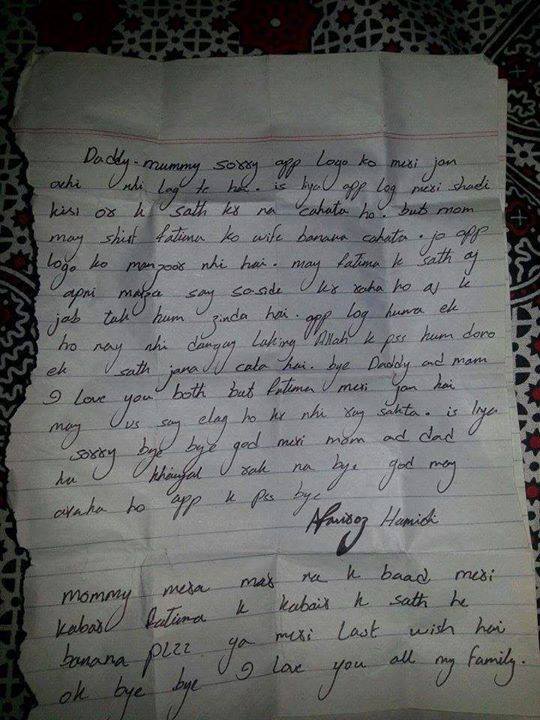 Daddy-mummy sorry app logo ko meri jan
achi nhi lag te hai. is liya app log meri shadi
kisi or k sath kr na cahata ho. but mom
may shirf fatima ko wife banana cahata. jo app
logo ko manzoor nhi hai. may fatima k sath aj
apni marze say soside kr raha ho aj k
jab tak hum zinda hai. app log huma ek
ho nay nhi dangay laking Allah k pss hum doro
ek sath jana cata hai. bye Daddy ad mom
I love you both but fatima meri jan hai
may us say elag ho kr nhi ray sakta. is liya
sorry bye bye god meri mom ad dad
ka khayal rak na bye god may
araha ho app k pss bye
Hamidi
mommy mera mar na k baad meri
kabar fatima k kabair k sath he
banana plzz ya meri last wish hai
ok bye bye I love you all my family.